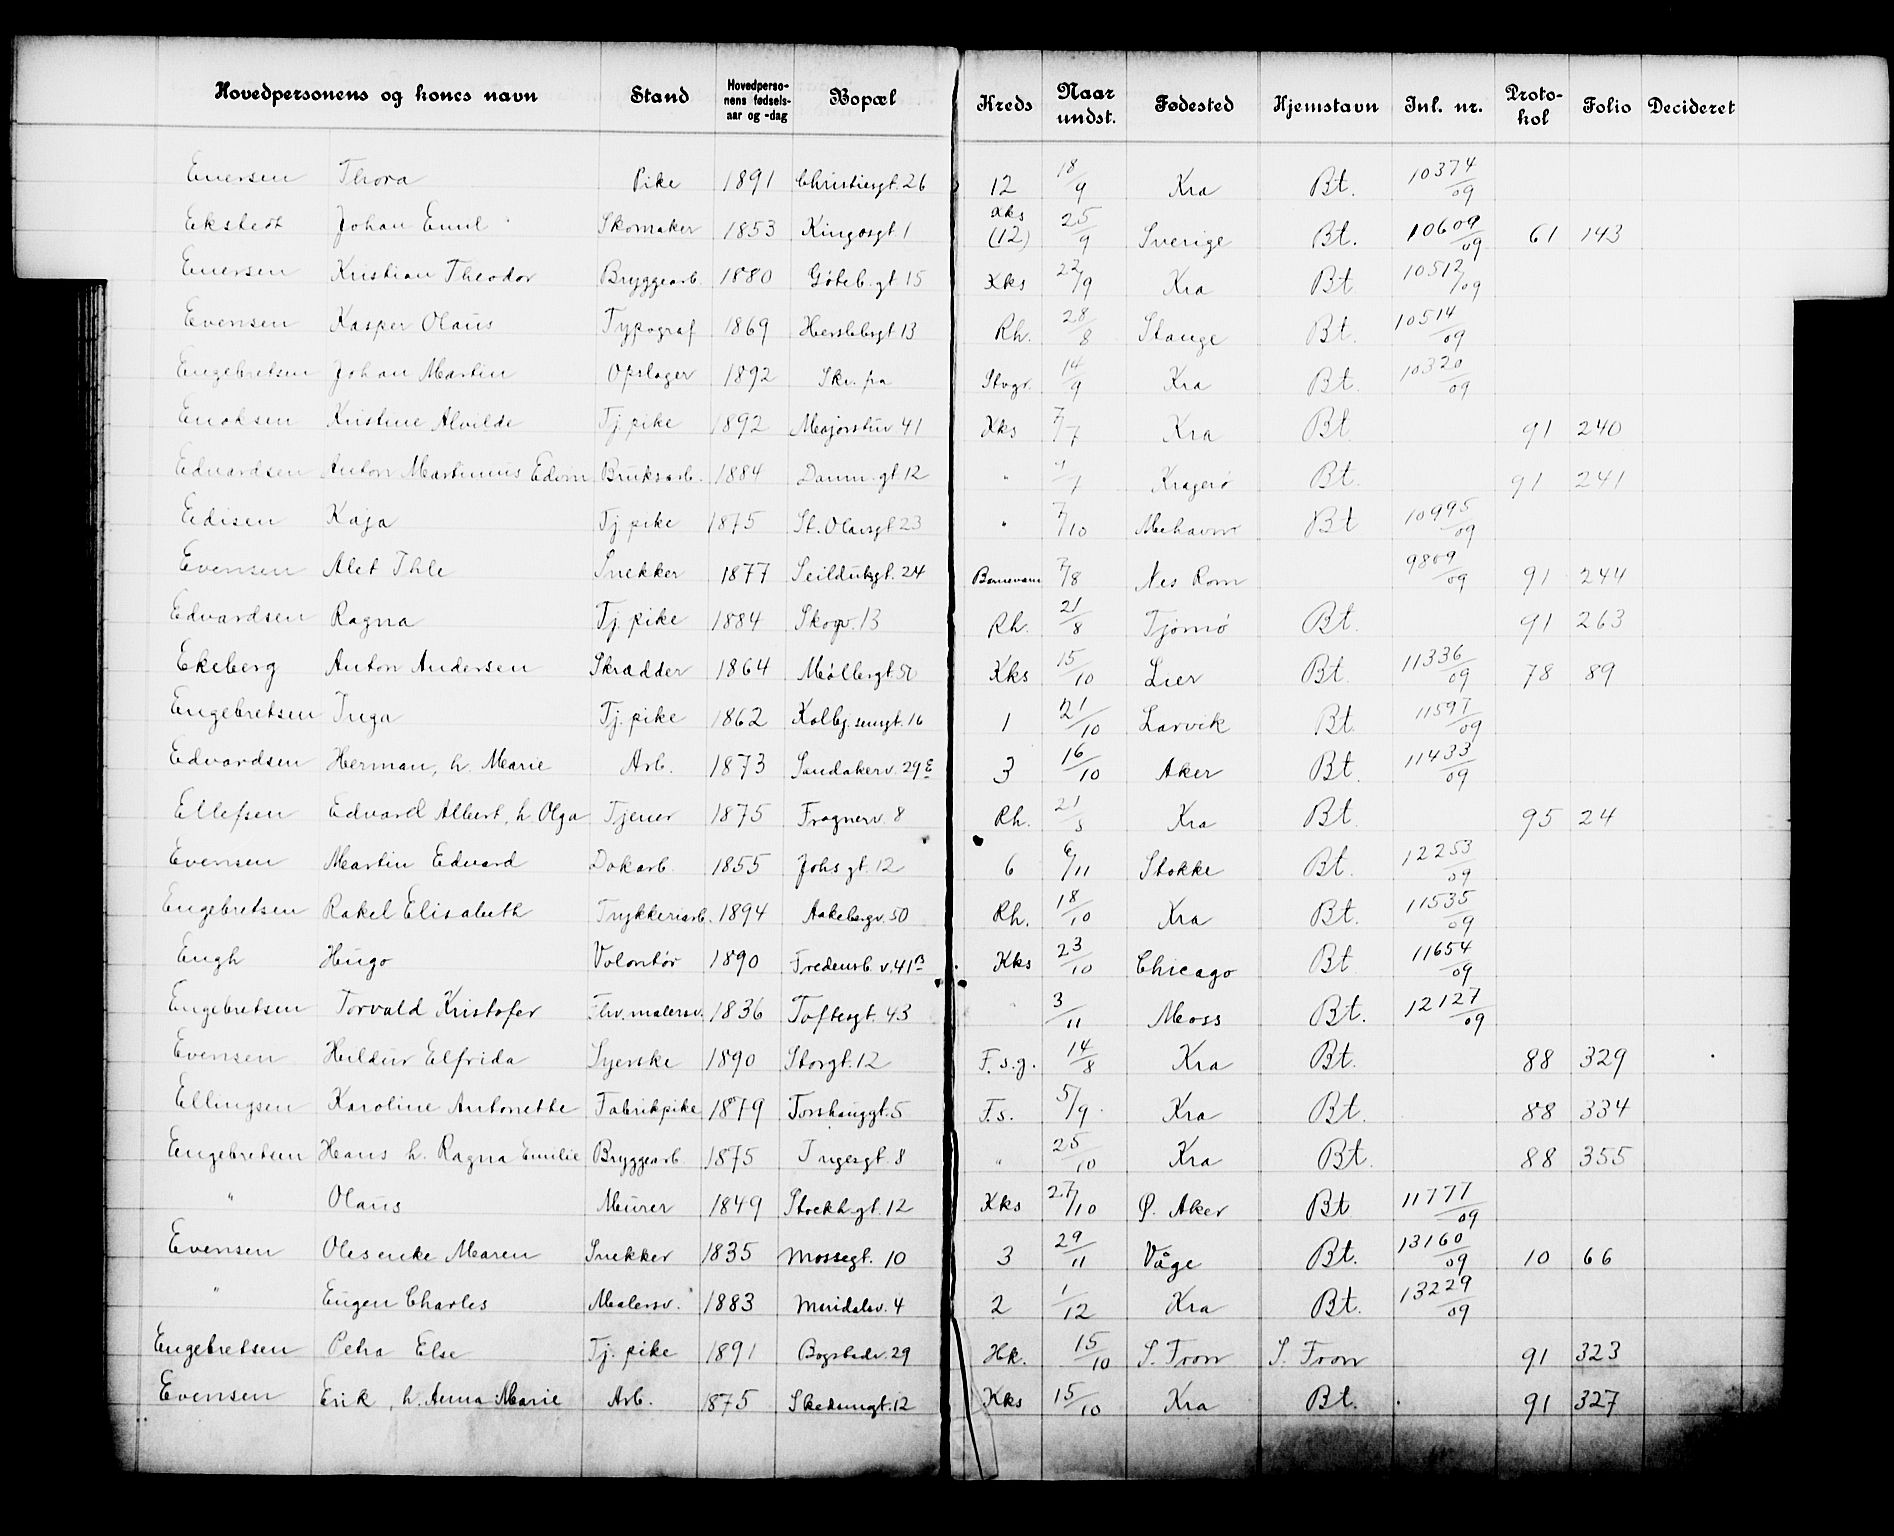 Hovedpersonens og kones navn Stand Hovedperso-nens fødsels-aar og -dag Bopæl Kreds Naar undst. Fødested Hjemstavn Inl. nr. Proto-kol Folio Decideret
Enersen Thora Pike 1891 Christiesgt. 26 12 18/9 Kra Bt. 10374/09
Ekstedt Johan Emil Skomaker 1853 Kingosgt 1 Kks (12) 25/9 Sverige Bt. 10609/09 61 143
Enersen Kristian Theodor Bryggearb. 1880 Göteb. gt. 15 Kks 22/9 Kra Bt 10512/09
Evensen Kasper Olaus Typograf 1869 Herslebsgt 13 Rh. 28/8 Stange Bt. 10514/09
Engebretsen Johan Martin Opslager 1892 14/9 Kra Bt. 10320/09
Enoksen Kristine Alvilde Tj. pike 1892 Majorstuv 41 Kks 7/7 Kra Bt 91 240
Edvardsen Anton Martinius Edvin Bruksarb. 1884 Danm. gt 12 " Kragerö Bt. 91 241
Edisen Kaja Tj pike 1875 St. Olavsgt 23 " 7/10 Mehavn Bt 10995/09
Evensen Alet Thle Snekker 1877 Seilduksgt. 24 Barnevern 7/8 Nes Rom 9809/09 91 244
Edvardsen Ragna Tj. pike 1884 Skogv. 13 Rh. 21/8 Tjömö Bt. 91 263
Ekeberg Anton Andersen Skrædder 1864 Möllergt 50 Kks 15/10 Lier Bt. 11336/09 78 89
Engebretsen Inga Tj. pike 1862 Kolbj. sensgt. 16 1 21/10 Larvik Bt 11597/09
Edvardsen Herman, h. Marie Arb. 1873 Sandakerv. 29 E 3 16/10 Aker Bt. 11433/09
Ellefsen Edvard Albert, h. Olga Tjener 1875 Frognerv. 8 Rh. Kra Bt 95 24
Evensen Martin Edvard Dokarb. 1855 Johs gt. 12 6 6/11 Stokke Bt. 12253/09
Engebretsen Rakel Elisabeth Trykkeriarb. 1894 Aakebergv. 50 Rh. 18/10 Kra Bt. 11535/09
Engh Hugo Volontör 1890 Fredensb. v. 41 B Kks 23/10 Chicago Bt 11654/09
Engebretsen Torvald Kristofer Fhv. malersv. 1836 Toftesgt. 43 " 3/11 Moss Bt. 12127/09
Evensen Huldur Elfrida Syerske 1890 Storgt. 12 F. s. g. 14/8 Kra Bt. 88 329
Ellingsen Karoline Antonette Fabrikpike 1879 Torshauggt. 5 F. s. 5/9 Kra Bt. 88 334
Engebretsen Hans h. Ragna Emilie Bryggearb 1875 Ingesgt. 8 " 25/10 Kra Bt. 88 355
" Olaus Murer 1849 Stockh. gt. 12 Kks 27/10 Ø. Aker Bt 11777/09
Evensen Oles enke Maren Snekker 1835 Mossegt. 10 3 29/11 Våge Bt. 13160/09 10 66
" Eugen Charles Malersv. 1883 Maridalsv. 4 2 1/12 Kra Bt. 13229/09
Engebretsen Petra Else Tj. pike 1891 Bogstadv. 29 Hk. 15/10 S. Fron S. Fron 91 323
Evensen Erik, h. Anna Marie Arb. 1875 Skedsmogt. 12 Kks 15/10 Kra Bt. 91 327